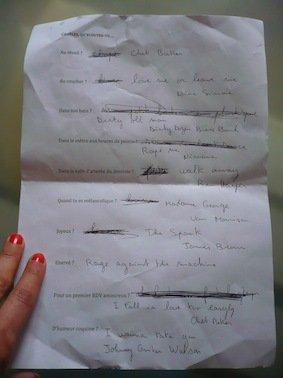 Au réveil ? Chet Baker
Au coucher ? love me or leave me
Nina Simone
Dans ton bain ?
Dirty old man
Dirty Dozen Brass Band
Dans le métro aux heures de pointe ?
Rape me
Nirvana
Dans la salle d'attente du dentiste ? walk away
Ben Harper
Quand tu es mélancolique ? Madame George
Van Morrison
Joyeux ? The Spank
James Brown
Enervé ? Rage against the machine
Pour un premier RDV amoureux ?
I fall in love too easyly
Chet Baker
D'humeur coquine ?
I wanna take you
Johnny Guitar Watson